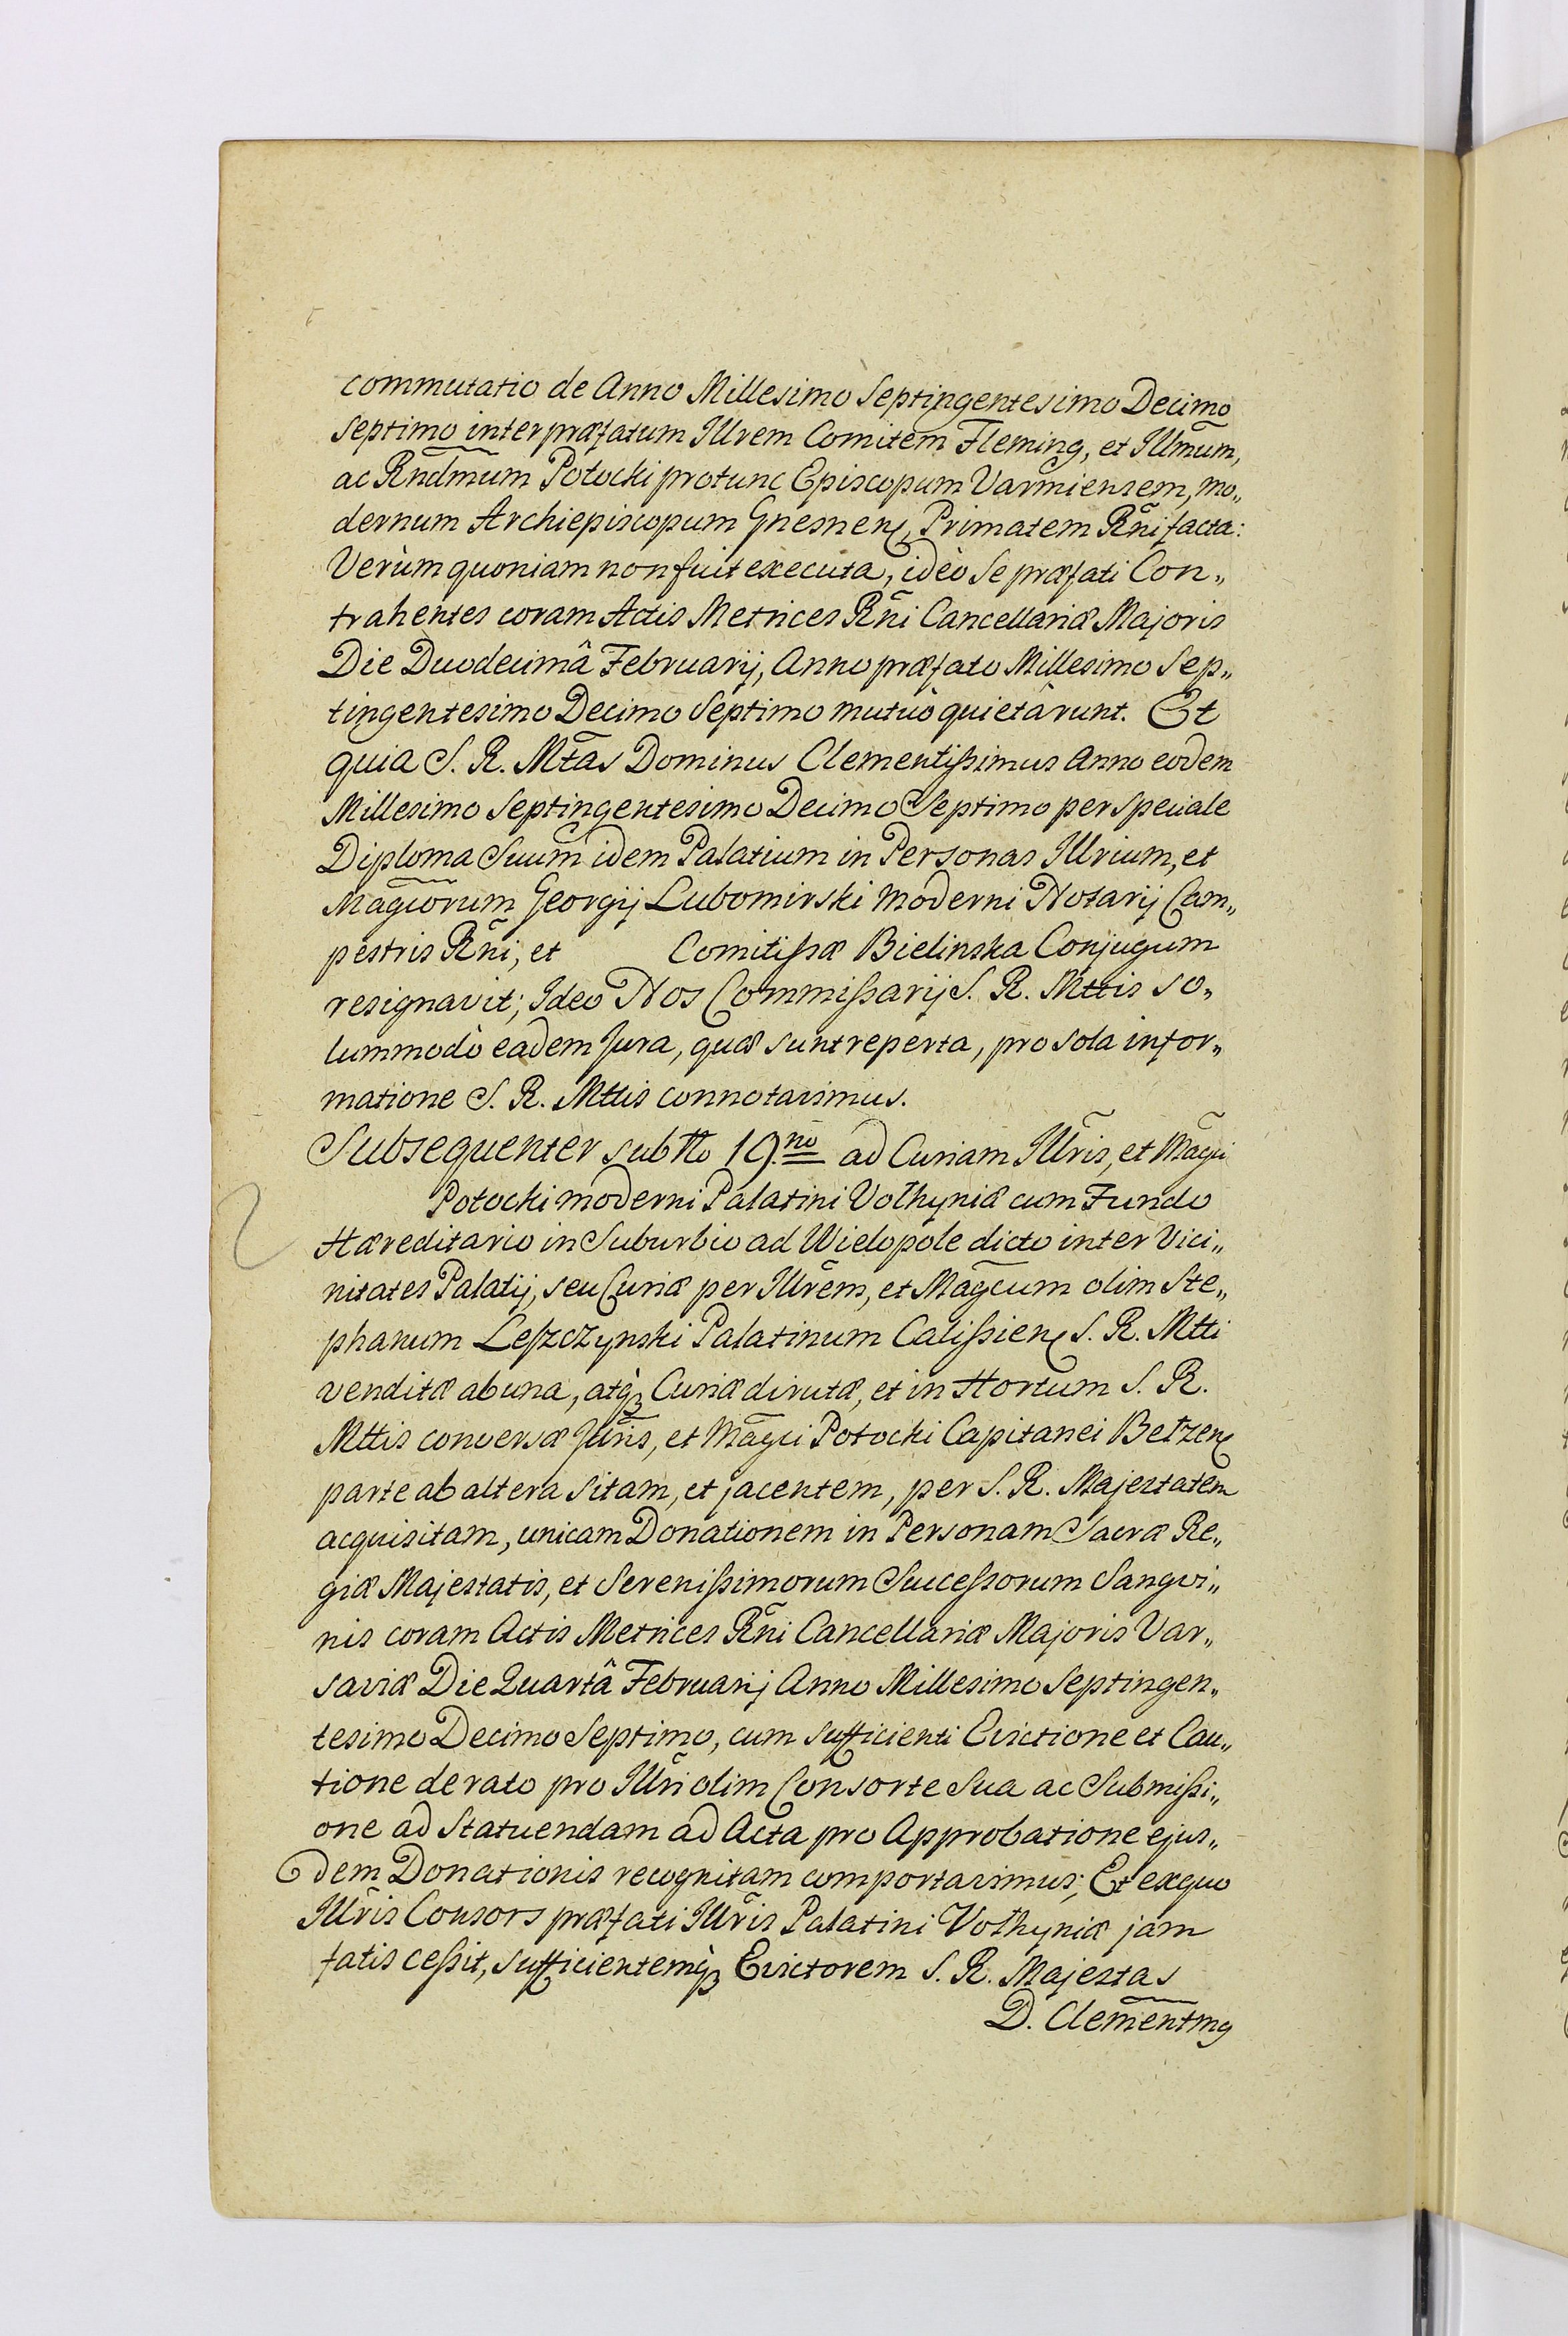 commutatio de Anno Millesimo Septingentesimo Decimo
septimo inter præfatum Illrem Comitem Fleming, et Illm̃um,
ac Rnd̃mum Potocki protunc Episcopum Varmiensem, mo„
dernum Archiepiscopum Gnesnen̄, Primatem Rñi facta:
Verùm quoniam non fuit executa, ideò se præfati Con„
trahentes coram Actis Metrices Rñi Cancellariæ Majoris
Die Duodecimâ Februarij, Anno præfato Millesimo Sep„
tingentesimo Decimo Septimo mutuò quietârunt. Et
quia S. R. Mt̃as Dominus Clementißimus Anno eodem
Millesimo Septingentesimo Decimo Septimo per speciale
Diploma Suum idem Palatium in Personas Illrium, et
Mag̃corum Georgij Lubomirski moderni Notarij Cam„
pestris Rñi, et Comitißæ Bielinska Conjugum
resignavit; Ideo Nos Commißarij S. R. Mttis so„
lummodò eadem Jura, quæ sunt reperta, pro sola infor„
matione S. R. Mttis connotavimus.
Subsequenter sub No 19.no ad Curiam Illr̃is, et Mag̃ci
Potocki moderni Palatini Volhyniæ cum Fundo
Hæreditario in Suburbio ad Wielopole dicto inter Vici„
nitates Palatij, seu Curiæ per Illr̃em, et Mag̃cum olim Ste„
phanum Leßzczynski Palatinum Calißien̄ S. R. Mtti
venditæ ab una, atq̀ꝫ Curiæ dirutæ, et in Hortum S. R.
Mttis conversæ Jllr̃is, et Mag̃ci Potocki Capitanei Betzen̄
parte ab altera sitam, et jacentem, per S. R. Majestatem
acquisitam, unicam Donationem in Personam Sacræ Re„
giæ Majestatis, et Serenißimorum Succeßorum Sangvi„
nis coram Actis Metrices Rñi Cancellariæ Majoris Var„
saviæ Die Quartâ Februarij Anno Millesimo Septingen„
tesimo Decimo Septimo, cum sufficienti Evictione et Cau„
tione de rato pro Illr̃i olim Consorte Sua ac Submißi„
one ad Statuendam ad Acta pro Approbatione ejus„
dem Donationis recognitam comportavimus; Et exquo
Illr̃is Consors præfati Illr̃is Palatini Volhyniæ jam
fatis ceßit, sufficientemq̀ꝫ Evictorem S. R. Majestas
D. Clem̃entmꝯ